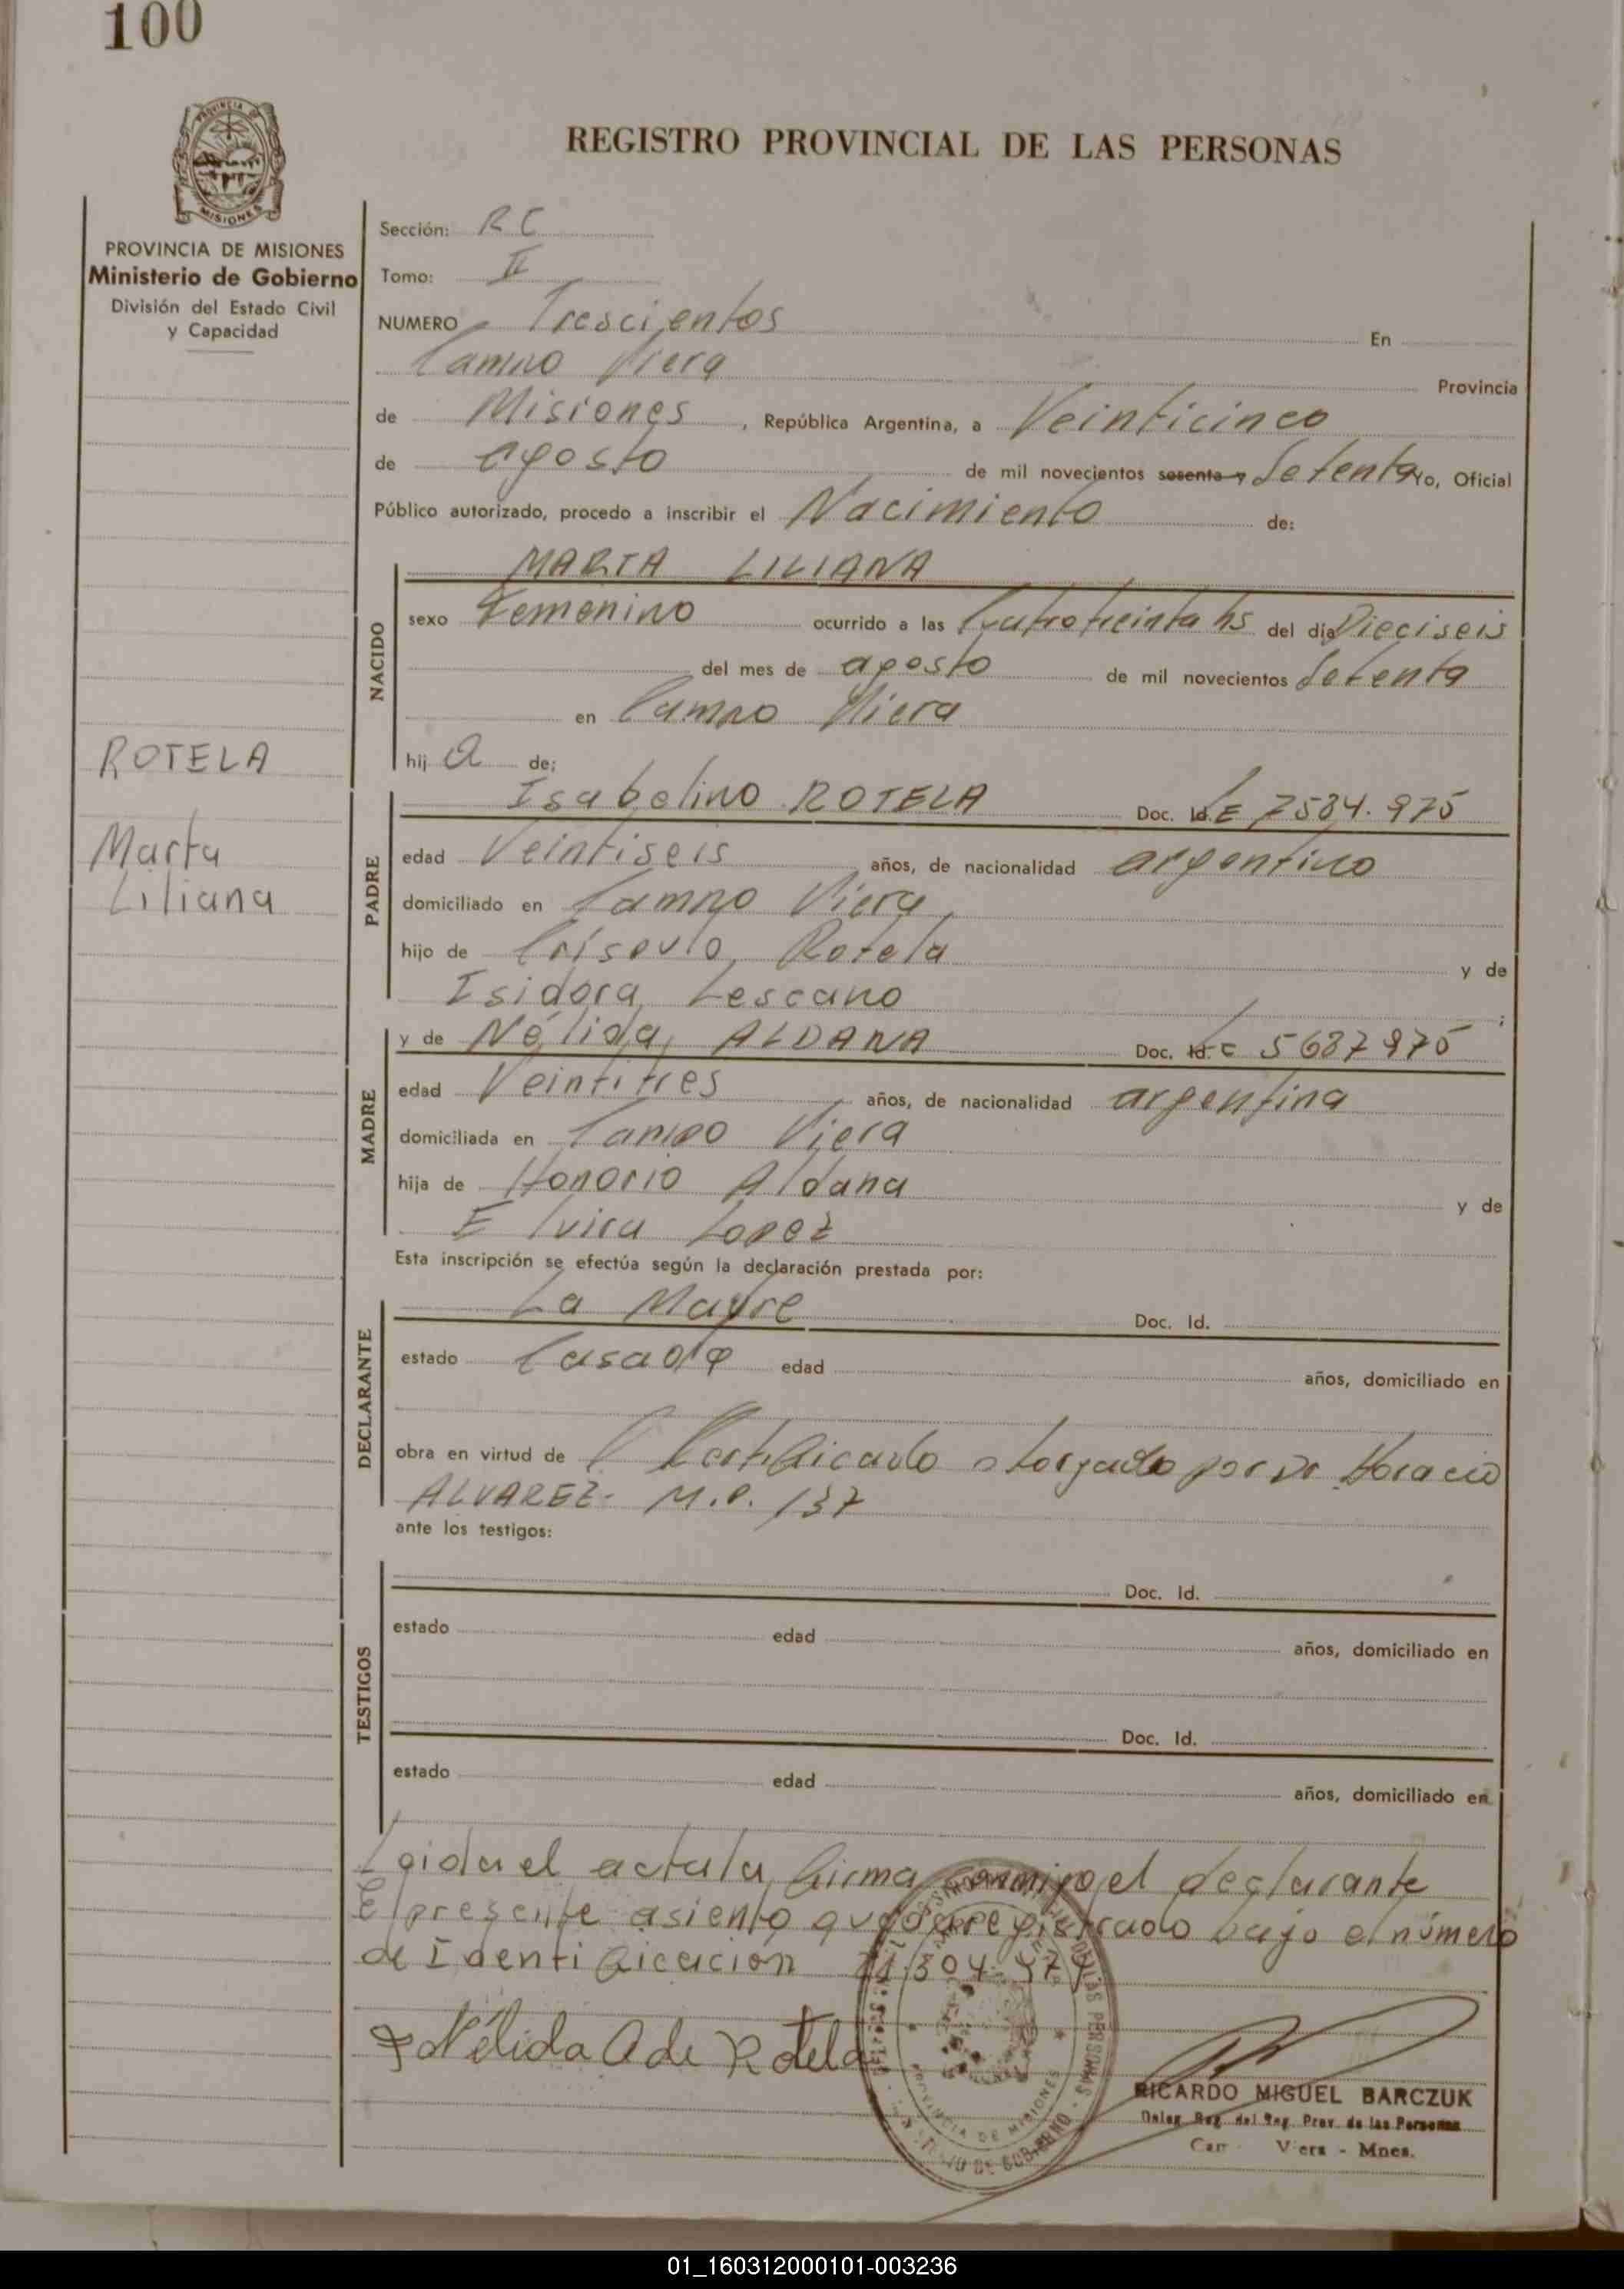 100
REGISTRO PROVINCIAL DE LAS PERSONAS
PROVINCIA DE MISIONES
PROVINCIA DE MISIONES
Ministerio de Gobierno
División del Estado Civil
y Capacidad
ROTELA
Marta
Liliana
Sección: RC
Tomo: II
NUMERO Trescientos En
Campo Viera Provincia
de Misiones, República Argentina, a Veinticinco
de agosto de mil novecientos sesenta y Setenta Yo, Oficial
Público autorizado, procedo a inscribir el Nacimiento de:
NACIDO
MARTA LILIANA
sexo Femenino ocurrido a las Cuatro treinta hs del día Dieciseis
del mes de agosto de mil novecientos Setenta
en Campo Viera
hija de:
PADRE
Isabelino ROTELA Doc. Id. LE 7584.975
edad Veintiseis años, de nacionalidad argentino
domiciliado en Campo Viera
hijo de Rotela y de
Isidora Lescano ;
MADRE
y de Nélida ALDANA Doc. Id. LC 5687975
edad Veintitres años, de nacionalidad argentina
domiciliada en Campo Viera
hija de Honorio Aldana y de
Elvira Lopez
Esta inscripción se efectúa según la declaración prestada por:
DECLARANTE
La Madre Doc. Id.
estado Casada edad años, domiciliado en
obra en virtud de Certificado otorgado por Dr Horacio
ALVAREZ. M.P. 137
ante los testigos:
TESTIGOS
Doc. Id.
estado edad años, domiciliado en
Doc. Id.
estado edad años, domiciliado en
Leida el acta la firma conmigo el declarante
El presente asiento queda registrado bajo el número
de Identificación
Nélida A de Rotela
PROVINCIA DE MISIONES
RICARDO MIGUEL BARCZUK
Deleg. Reg. del Reg. Prov. de las Personas
Viera - Mnes.
01_160312000101-003236